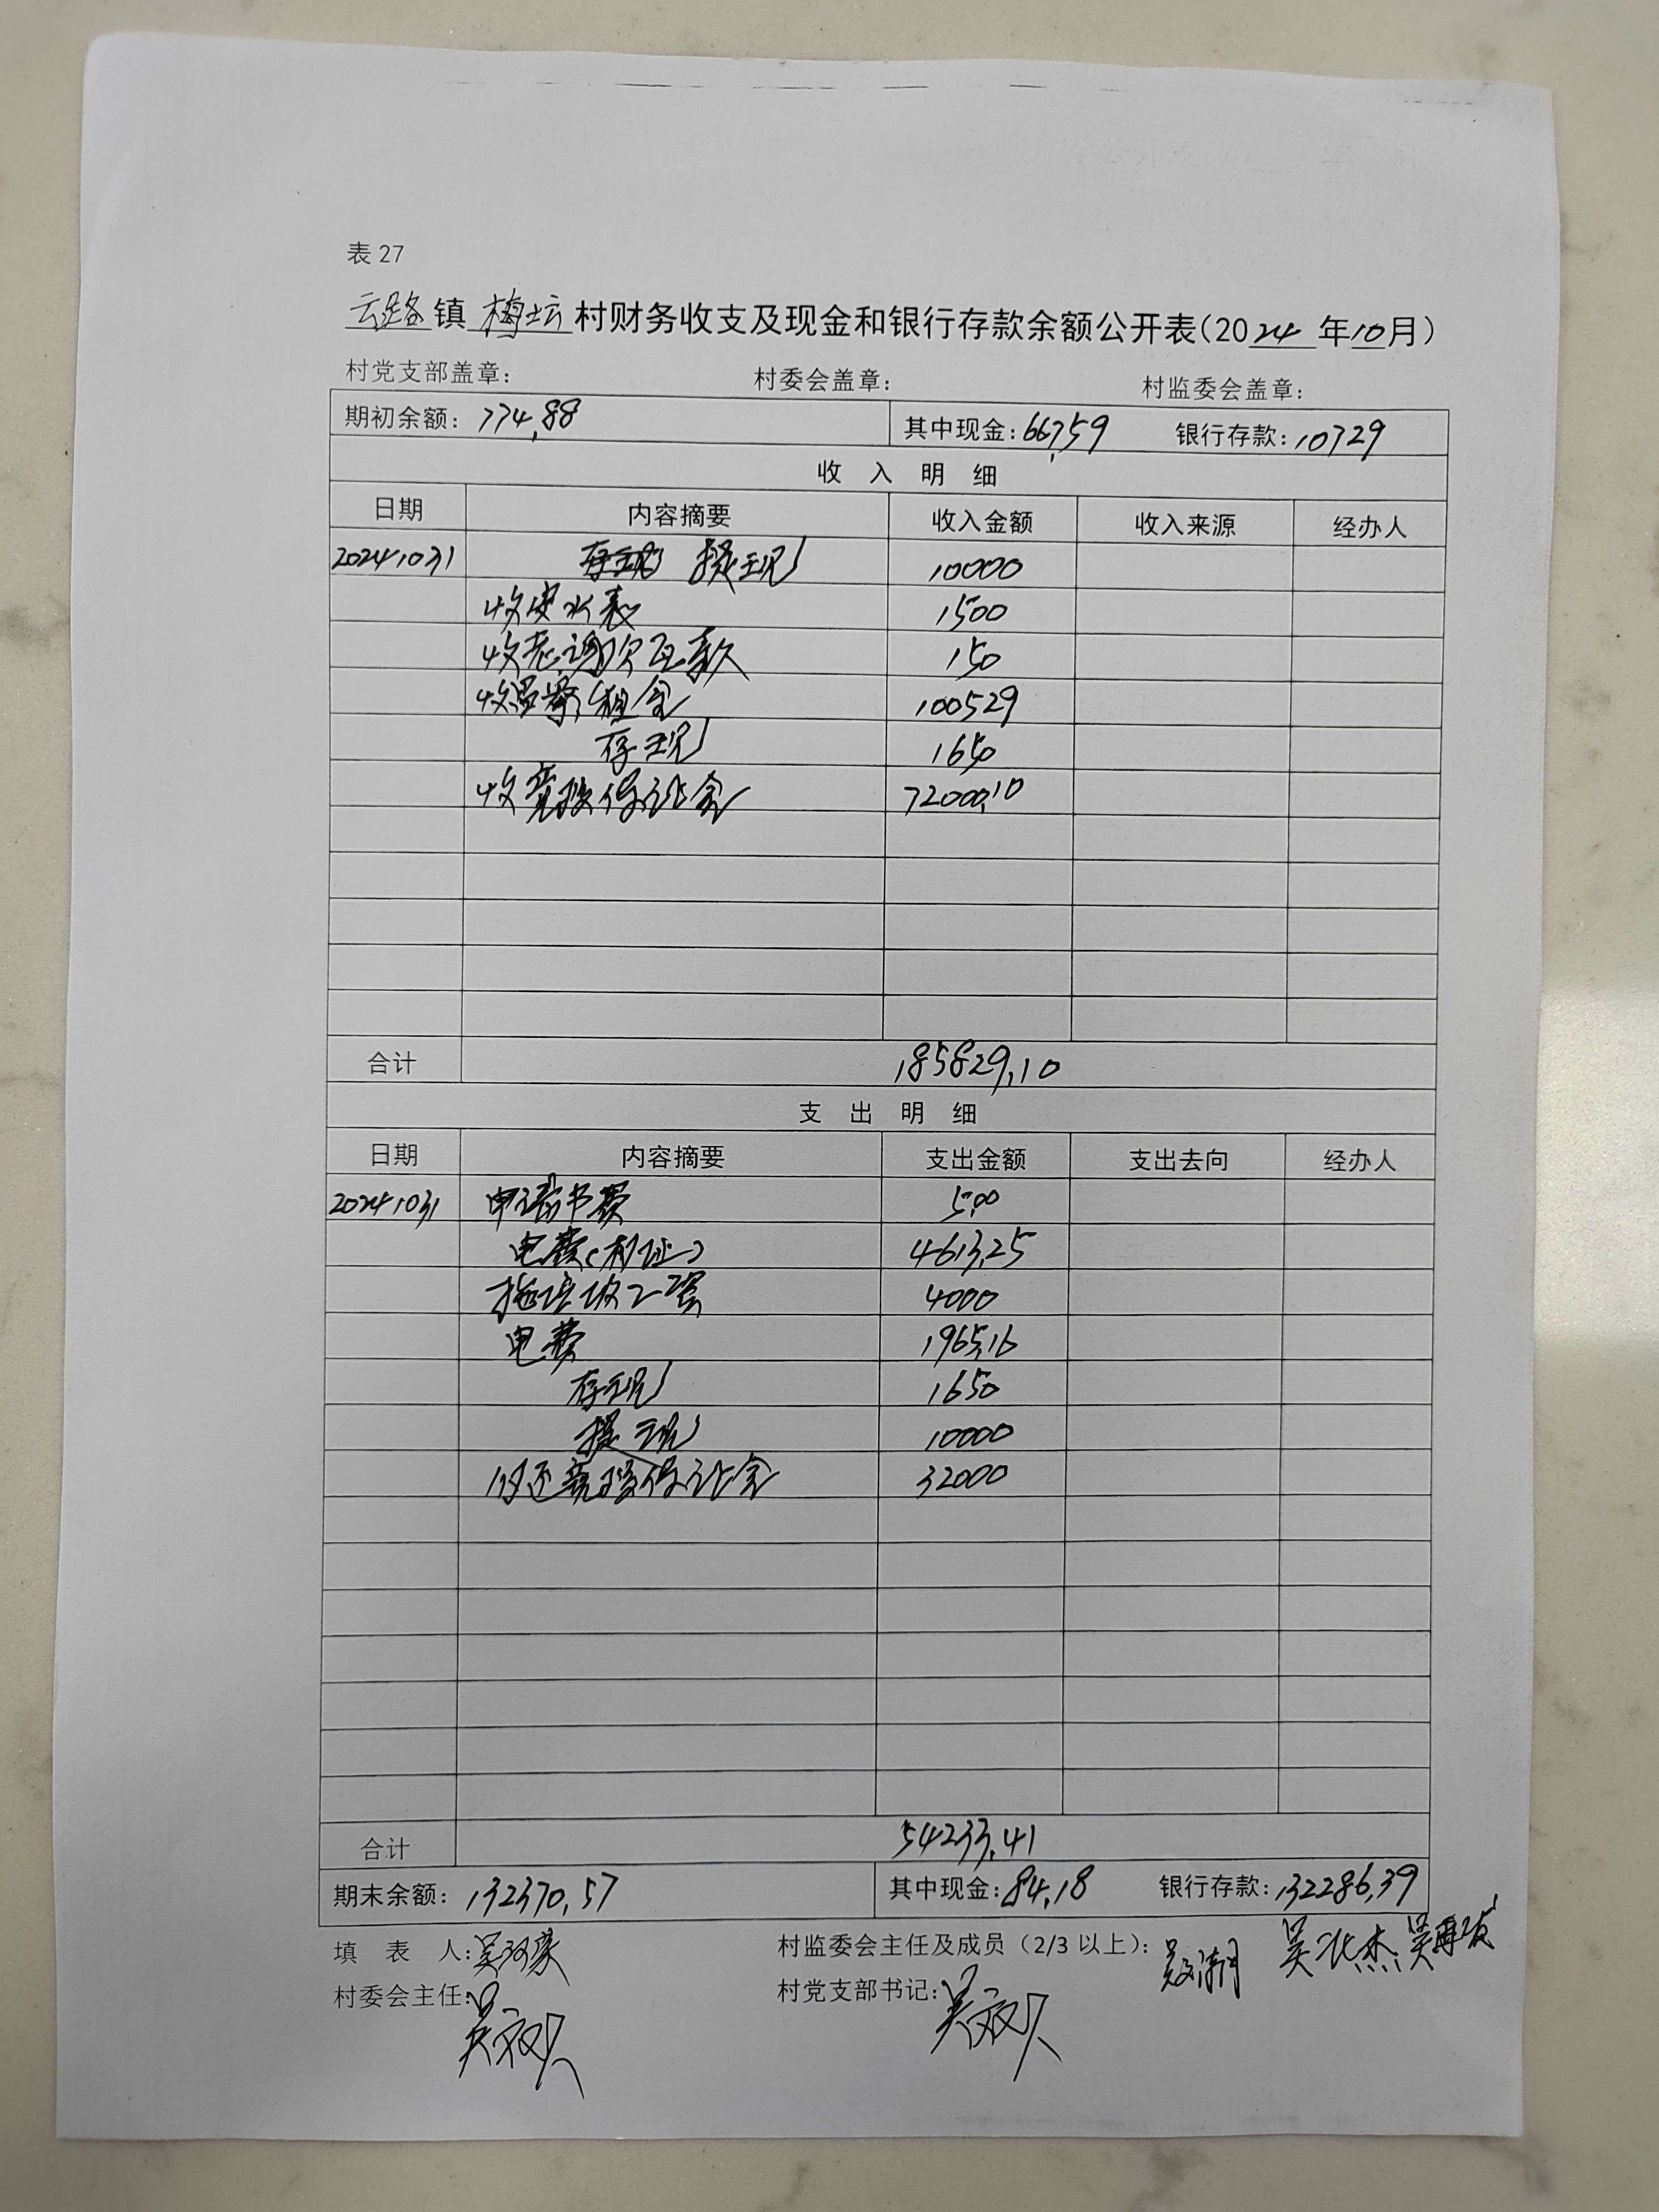 表 27
云路镇 梅坛 村财务收支及现金和银行存款余额公开表(2024 年10月)
村党支部盖章: 村委会盖章: 村监委会盖章:
期初余额: 774.88 其中现金: 667.59 银行存款: 107.29
收 入 明 细
日期 内容摘要 收入金额 收入来源 经办人
20241031 提现 10000
收安水表 1500
收老 欠 款 150
收 租金 100529
存现 1650
收竞投保证金 72000.10
合计 185829.10
支 出 明 细
日期 内容摘要 支出金额 支出去向 经办人
20241031 书费 5.00
电费(村址) 4613.25
拖垃圾工资 4000
电费 1965.16
存现 1650
提现 10000
归还竞投保证金 32000
合计 54233.41
期末余额: 132370.57 其中现金: 84.18 银行存款: 132286.39
填 表 人: 吴 村监委会主任及成员（2/3 以上）: 吴 杰 吴
村委会主任: 吴 村党支部书记: 吴